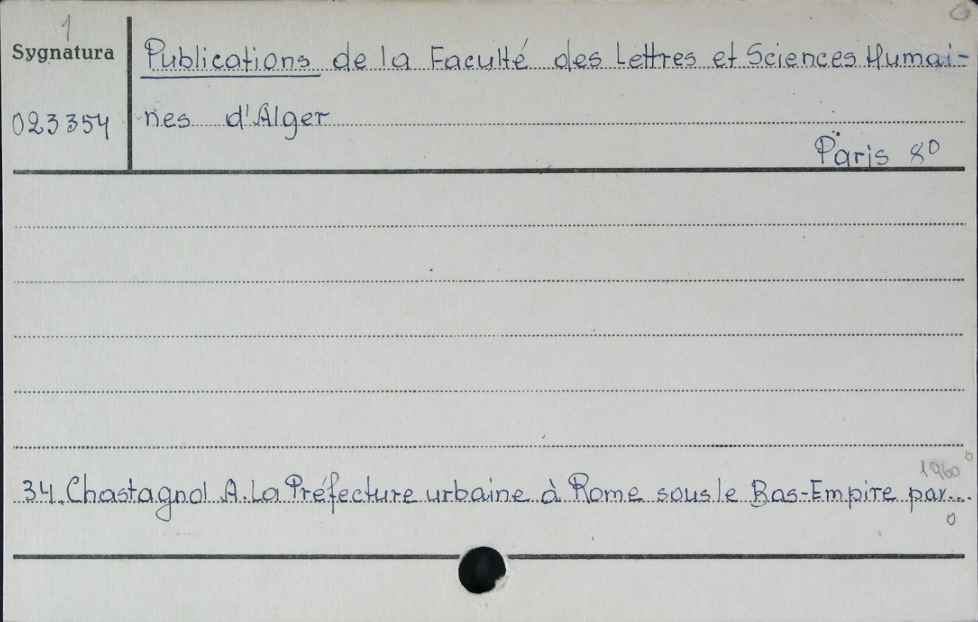 1
Sygnatura
023354
Publications de la Faculté des Lettres et Sciences Humai-
nes d'Alger
Paris 8⁰
1960
34. Chastagnol A. La Préfecture urbaine à Rome sous le Bas-Empire par...